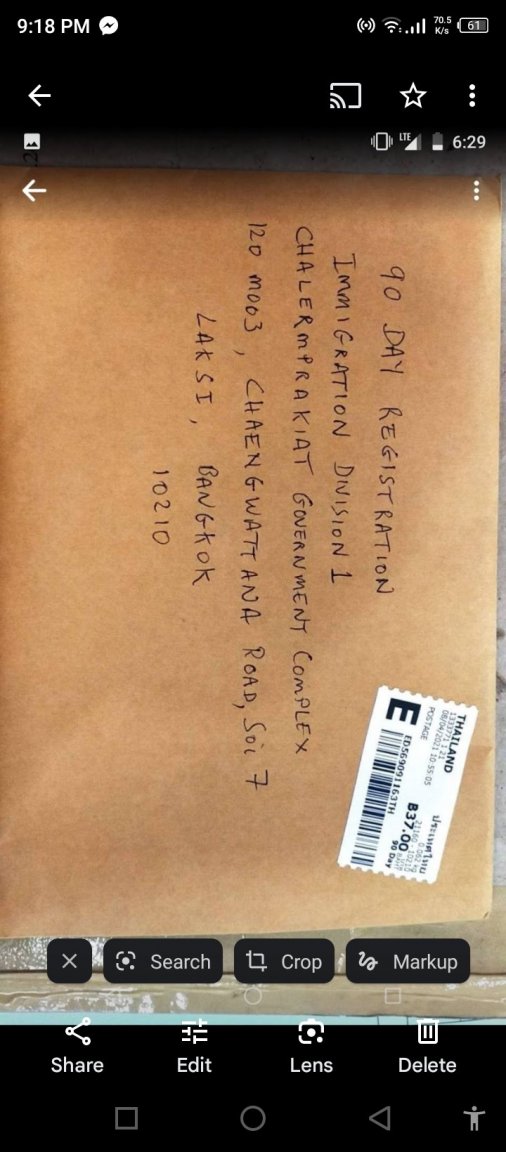 9:18 PM
70.5
K/s
61
LTE
6:29
90 DAY REGISTRATION
IMMIGRATION DIVISION 1
CHALERMPRAKIAT GOVERNMENT COMPLEX
120 MOO3, CHAENGWATTANA ROAD, Soi 7
LAKSI, BANGKOK
10210
THAILAND
ประเทศไทย
08/04/2021 10:55:05
POSTAGE
฿37.00
E
ED569091163TH
90 Day
Search
Crop
Markup
Share
Edit
Lens
Delete